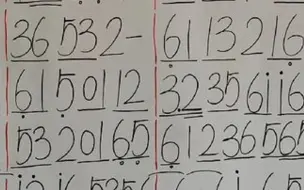 36 532- 61 13216
615012 32 35 6116
53 20165 61236565